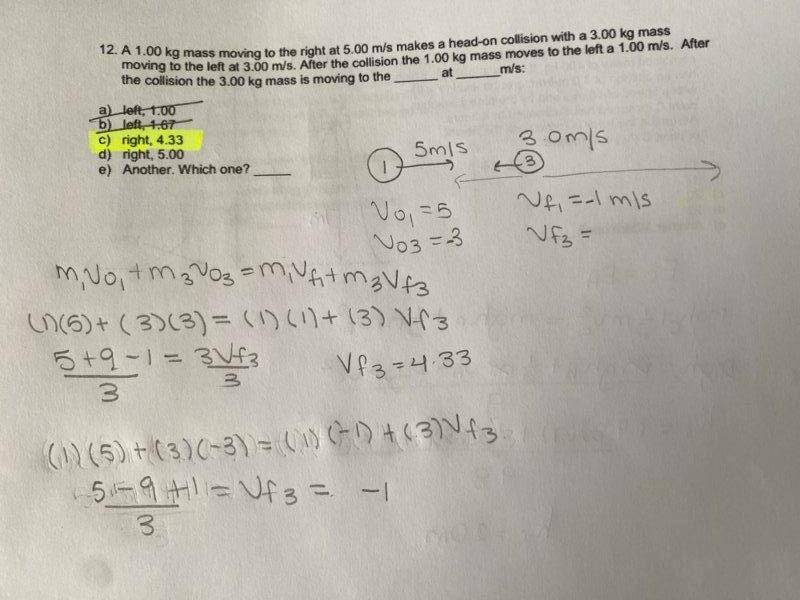 12. A 1.00 kg mass moving to the right at 5.00 m/s makes a head-on collision with a 3.00 kg mass
moving to the left at 3.00 m/s. After the collision the 1.00 kg mass moves to the left a 1.00 m/s. After
the collision the 3.00 kg mass is moving to the ______ at ______m/s:
a) left, 1.00
b) left, 1.67
c) right, 4.33
d) right, 5.00
e) Another. Which one? _____
1 5m/s 3.0m/s 3
Vo1 = 5 Vf1 = -1 m/s
Vo3 = -3 Vf3 =
m1Vo1 + m3Vo3 = m1Vf1 + m3Vf3
(1)(5) + (3)(3) = (1)(1) + (3) Vf3
5+9-1 = 3Vf3 Vf3 = 4.33
3 3
(1)(5) + (3)(-3) = (1)(-1) + (3)Vf3
5-9+1 = Vf3 = -1
3